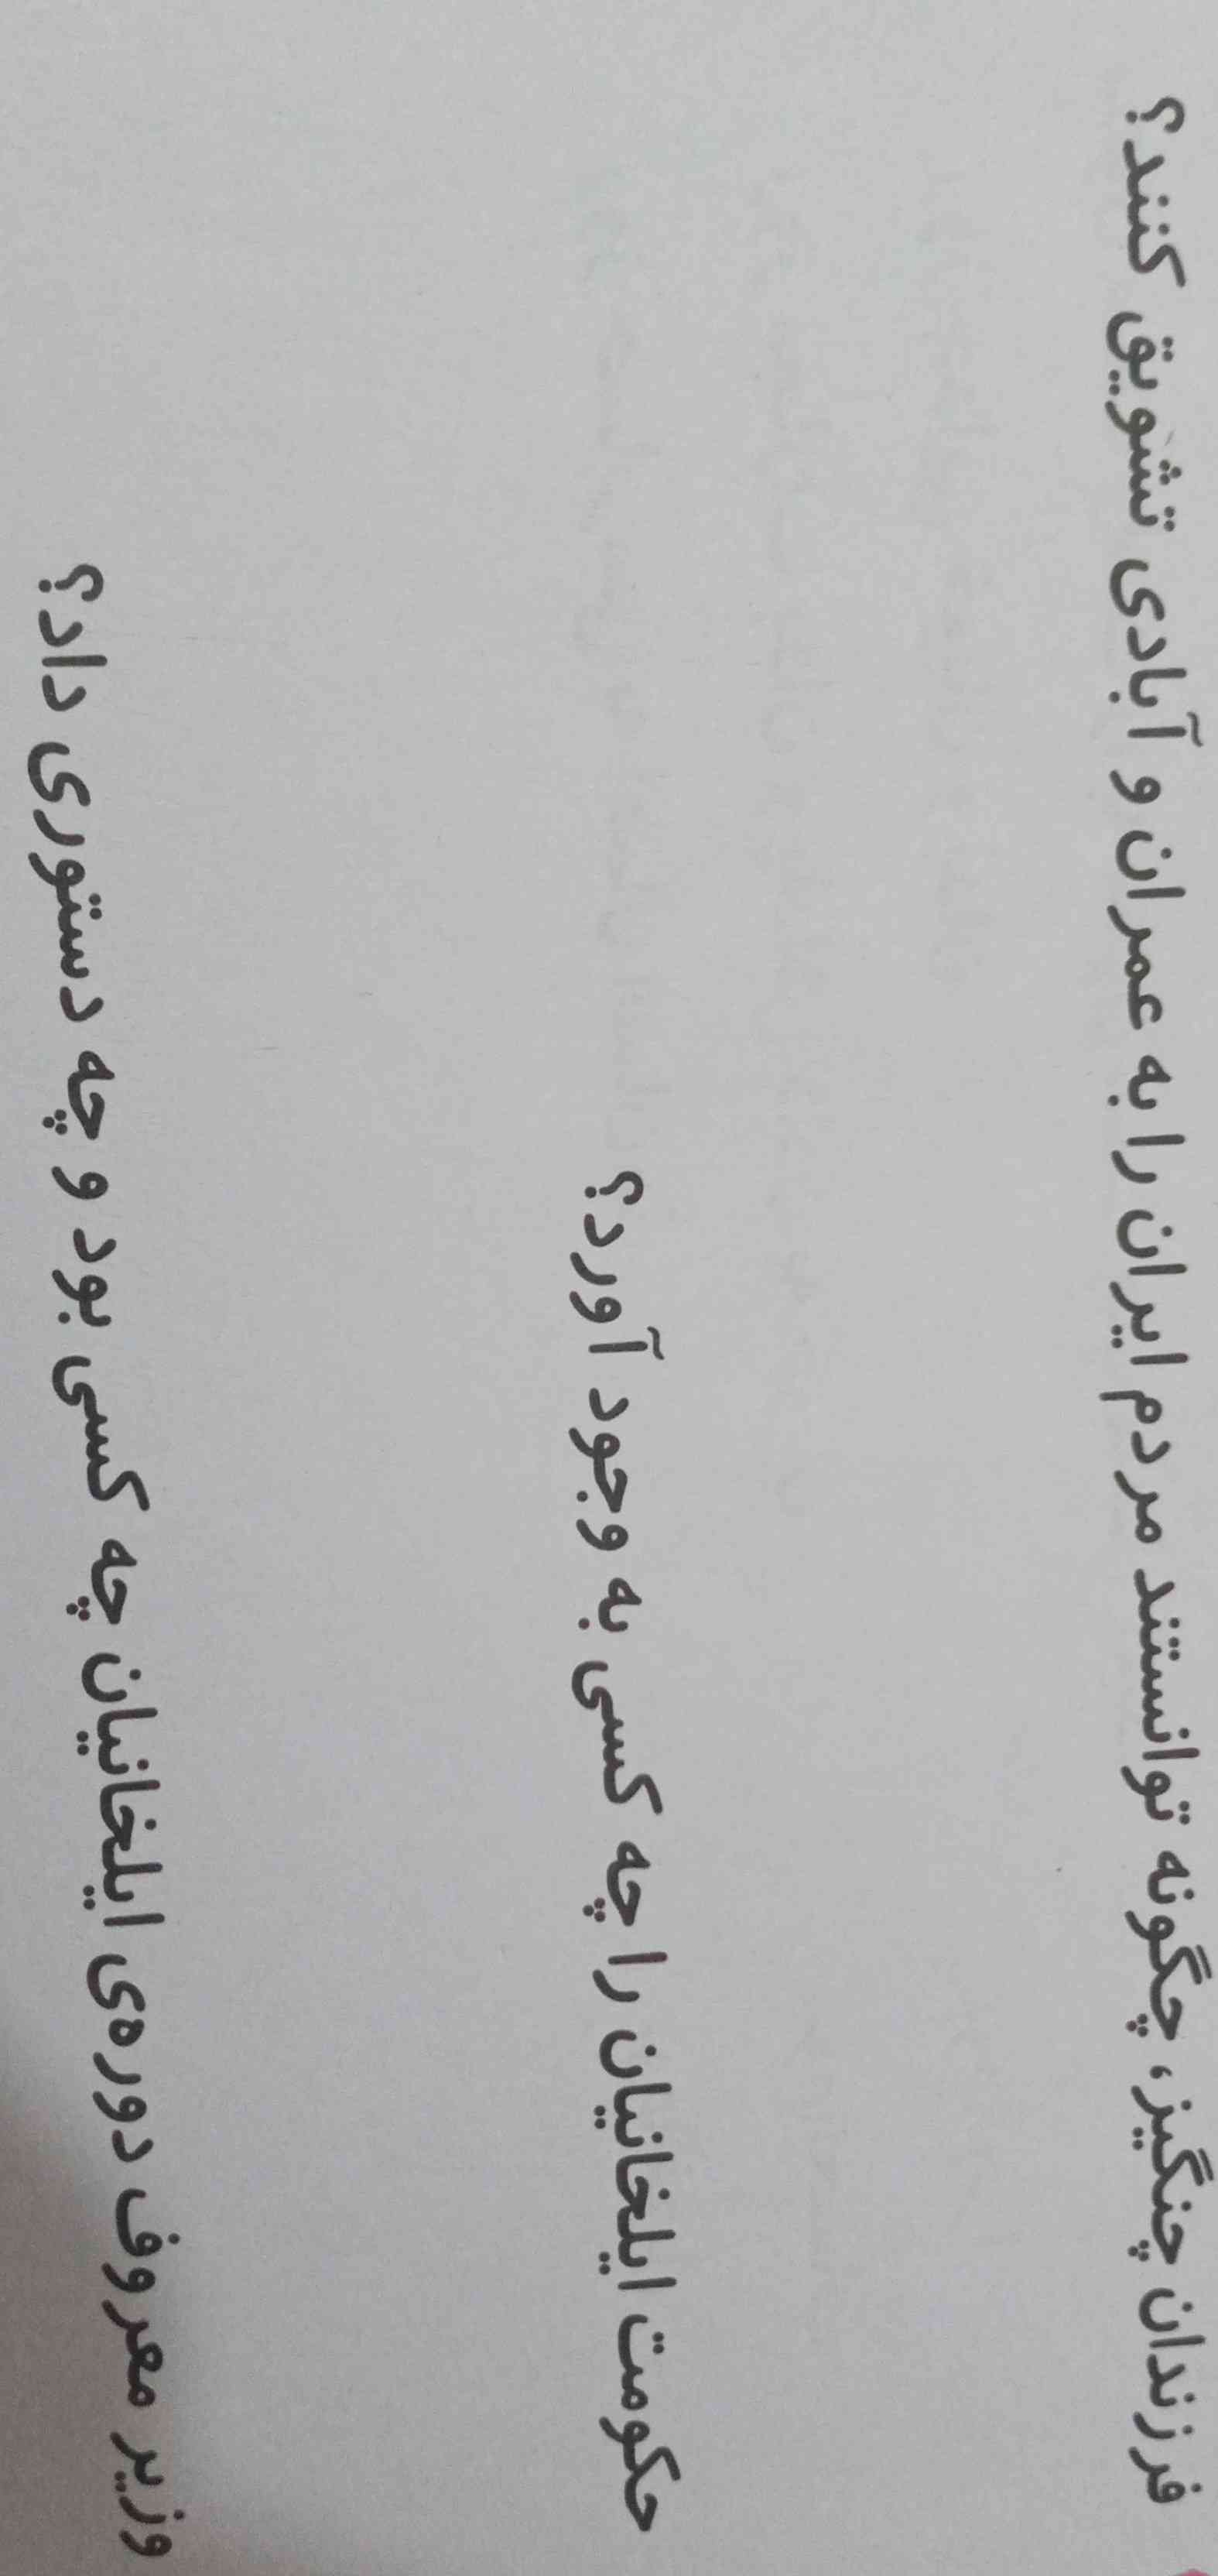 فرزندان چنگیز، چگونه توانستند مردم ایران را به عمران و آبادی تشویق کنند؟
حکومت ایلخانیان را چه کسی به وجود آورد؟
وزیر معروف دوره‌ی ایلخانیان چه کسی بود و چه دستوری داد؟